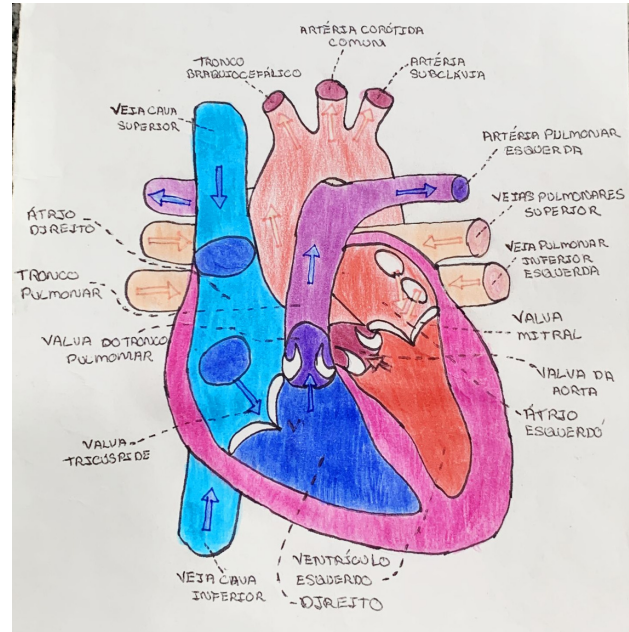 ARTÉRIA CORÓTIDA
COMUM
TRONCO
BRAQUIOCEFÁLICO
ARTÉRIA
SUBCLÁVIA
VEIA CAVA
SUPERIOR
ARTÉRIA PULMONAR
ESQUERDA
VEIAS PULMONARES
SUPERIOR
ÁTRIO
DIREITO
VEIA PULMONAR
INFERIOR
ESQUERDA
TRONCO
PULMONAR
VALVA
MITRAL
VALVA DO TRONCO
PULMONAR
VALVA DA
AORTA
ÁTRIO
ESQUERDO
VALVA
TRICÚSPIDE
VENTRÍCULO
ESQUERDO
DIREITO
VEIA CAVA
INFERIOR